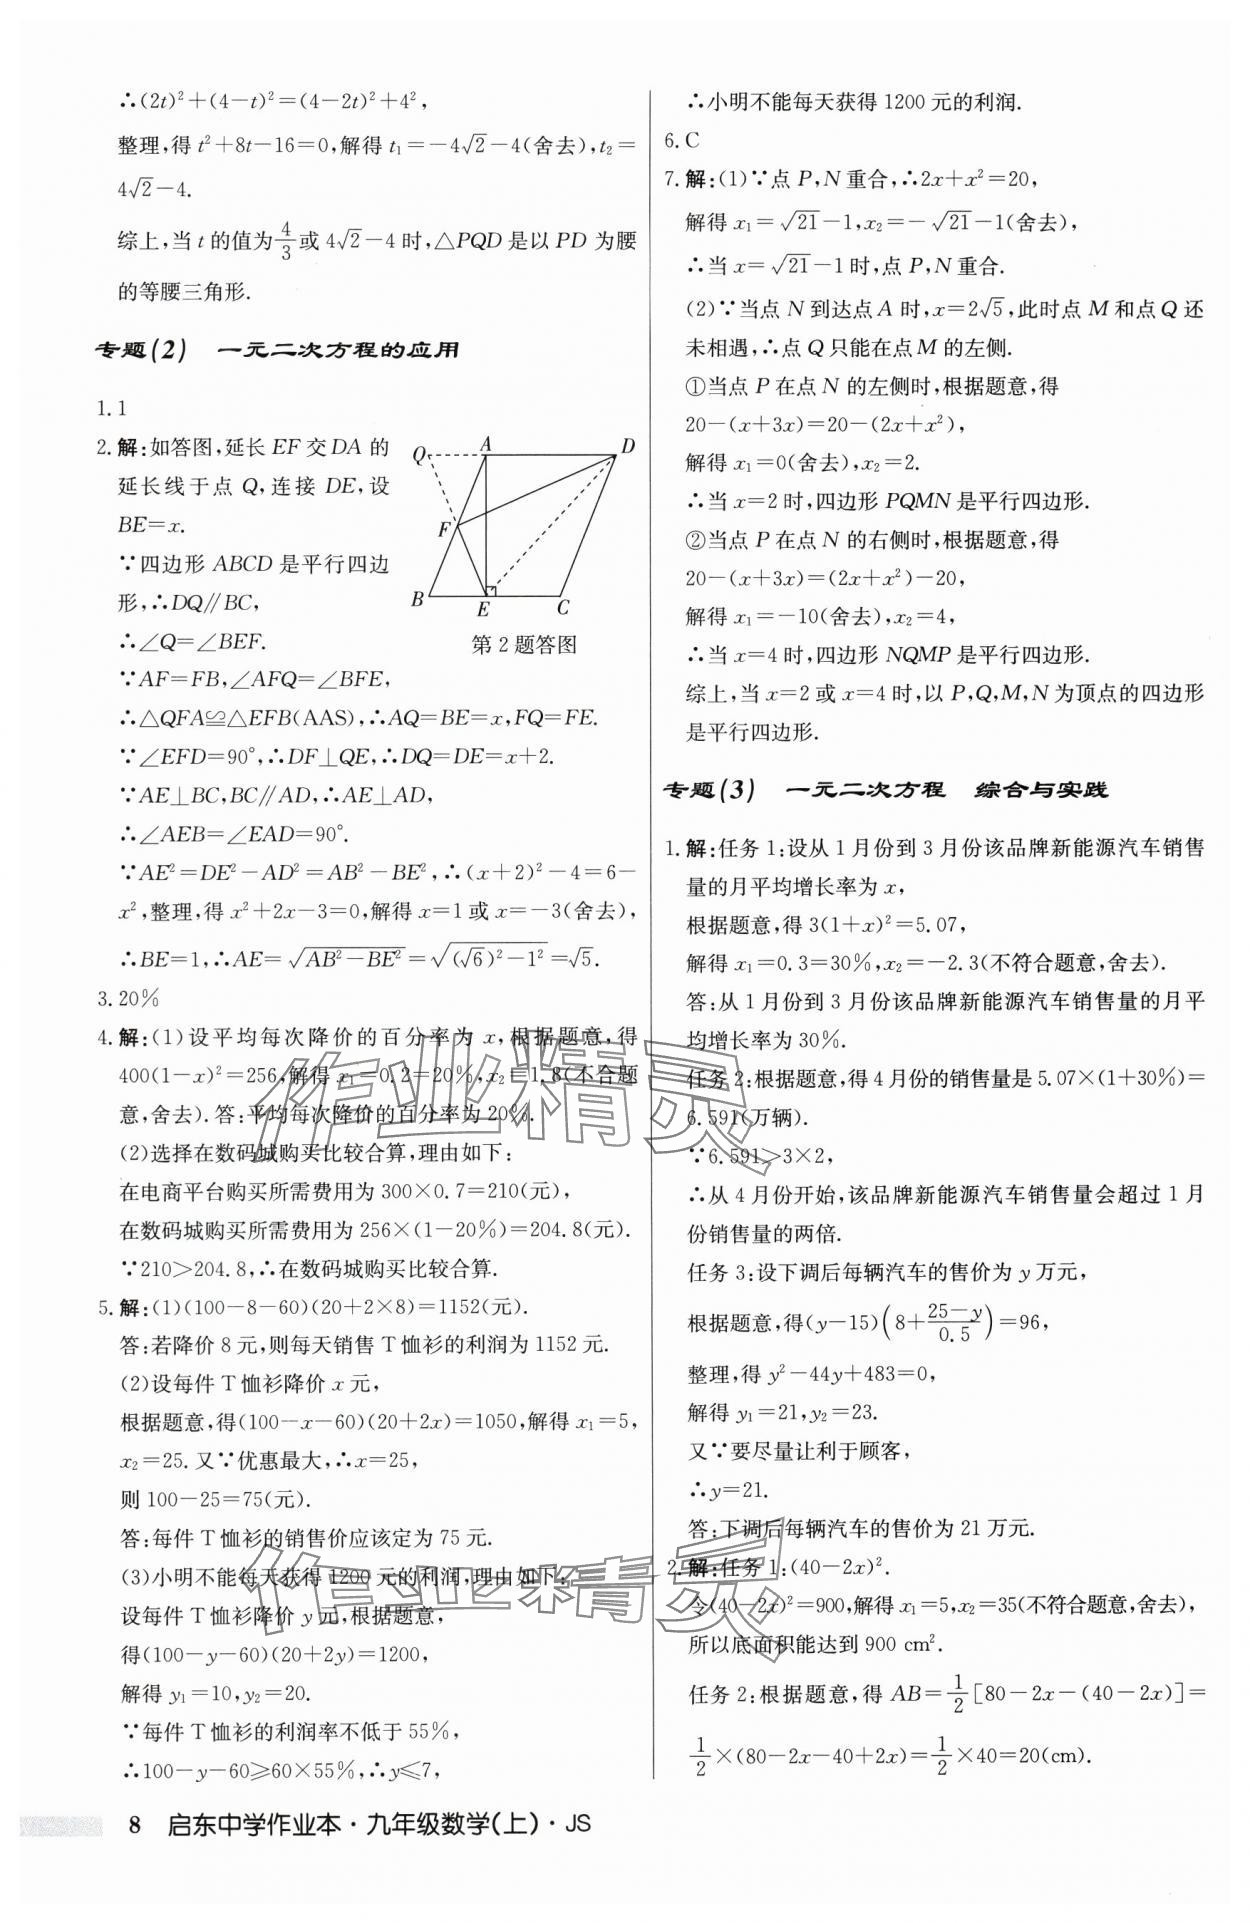 ∴(2t)²+(4-t)²=(4-2t)²+4²,
整理,得 t²+8t-16=0,解得 t₁=-4√2-4(舍去),t₂=
4√2-4.
综上,当 t 的值为4/3或 4√2-4 时,△PQD 是以 PD 为腰
的等腰三角形.
专题(2) 一元二次方程的应用
1. 1
2. 解:如答图,延长 EF 交 DA 的
延长线于点 Q,连接 DE,设
BE=x.
∵四边形 ABCD 是平行四边
形,∴DQ∥BC,
∴∠Q=∠BEF.
Q A D F B E C
第 2 题答图
∵AF=FB,∠AFQ=∠BFE,
∴△QFA≌△EFB(AAS),∴AQ=BE=x,FQ=FE.
∵∠EFD=90°,∴DF⊥QE,∴DQ=DE=x+2.
∵AE⊥BC,BC∥AD,∴AE⊥AD,
∴∠AEB=∠EAD=90°.
∵AE²=DE²-AD²=AB²-BE²,∴(x+2)²-4=6-
x²,整理,得 x²+2x-3=0,解得 x=1 或 x=-3(舍去),
∴BE=1,∴AE=√(AB²-BE²)=√((√6)²-1²)=√5.
3. 20%
4. 解:(1)设平均每次降价的百分率为 x,根据题意,得
400(1-x)²=256,解得 x₁=0.2=20%,x₂=1.8(不合题
意,舍去).答:平均每次降价的百分率为 20%.
(2)选择在数码城购买比较合算,理由如下:
在电商平台购买所需费用为 300×0.7=210(元),
在数码城购买所需费用为 256×(1-20%)=204.8(元).
∵210>204.8,∴在数码城购买比较合算.
5. 解:(1)(100-8-60)(20+2×8)=1152(元).
答:若降价 8 元,则每天销售 T 恤衫的利润为 1152 元.
(2)设每件 T 恤衫降价 x 元,
根据题意,得(100-x-60)(20+2x)=1050,解得 x₁=5,
x₂=25.又∵优惠最大,∴x=25,
则 100-25=75(元).
答:每件 T 恤衫的销售价应该定为 75 元.
(3)小明不能每天获得 1200 元的利润,理由如下:
设每件 T 恤衫降价 y 元,根据题意,
得(100-y-60)(20+2y)=1200,
解得 y₁=10,y₂=20.
∵每件 T 恤衫的利润率不低于 55%,
∴100-y-60≥60×55%,∴y≤7,
∴小明不能每天获得 1200 元的利润.
6. C
7. 解:(1)∵点 P,N 重合,∴2x+x²=20,
解得 x₁=√21-1,x₂=-√21-1(舍去),
∴当 x=√21-1 时,点 P,N 重合.
(2)∵当点 N 到达点 A 时,x=2√5,此时点 M 和点 Q 还
未相遇,∴点 Q 只能在点 M 的左侧.
①当点 P 在点 N 的左侧时,根据题意,得
20-(x+3x)=20-(2x+x²),
解得 x₁=0(舍去),x₂=2.
∴当 x=2 时,四边形 PQMN 是平行四边形.
②当点 P 在点 N 的右侧时,根据题意,得
20-(x+3x)=(2x+x²)-20,
解得 x₁=-10(舍去),x₂=4,
∴当 x=4 时,四边形 NQMP 是平行四边形.
综上,当 x=2 或 x=4 时,以 P,Q,M,N 为顶点的四边形
是平行四边形.
专题(3) 一元二次方程 综合与实践
1. 解:任务 1:设从 1 月份到 3 月份该品牌新能源汽车销售
量的月平均增长率为 x,
根据题意,得 3(1+x)²=5.07,
解得 x₁=0.3=30%,x₂=-2.3(不符合题意,舍去).
答:从 1 月份到 3 月份该品牌新能源汽车销售量的月平
均增长率为 30%.
任务 2:根据题意,得 4 月份的销售量是 5.07×(1+30%)=
6.591(万辆).
∵6.591>3×2,
∴从 4 月份开始,该品牌新能源汽车销售量会超过 1 月
份销售量的两倍.
任务 3:设下调后每辆汽车的售价为 y 万元,
根据题意,得(y-15)(8+(25-y)/0.5)=96,
整理,得 y²-44y+483=0,
解得 y₁=21,y₂=23.
又∵要尽量让利于顾客,
∴y=21.
答:下调后每辆汽车的售价为 21 万元.
2. 解:任务 1:(40-2x)².
令(40-2x)²=900,解得 x₁=5,x₂=35(不符合题意,舍去),
所以底面积能达到 900 cm².
任务 2:根据题意,得 AB=1/2[80-2x-(40-2x)]=
1/2×(80-2x-40+2x)=1/2×40=20(cm).
作业精灵
作业精灵
8 启东中学作业本·九年级数学(上)·JS